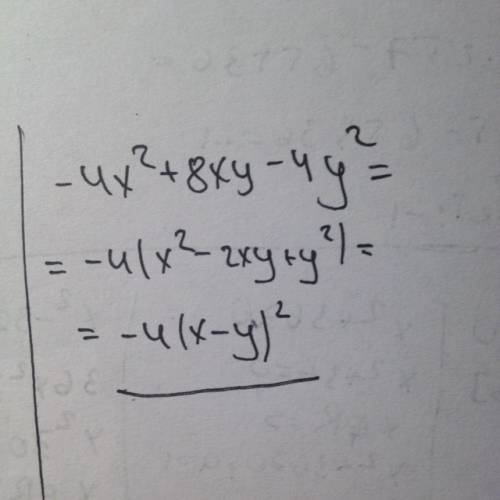 -4x²+8xy-4y²=
=-4(x²-2xy+y²)=
=-4(x-y)²